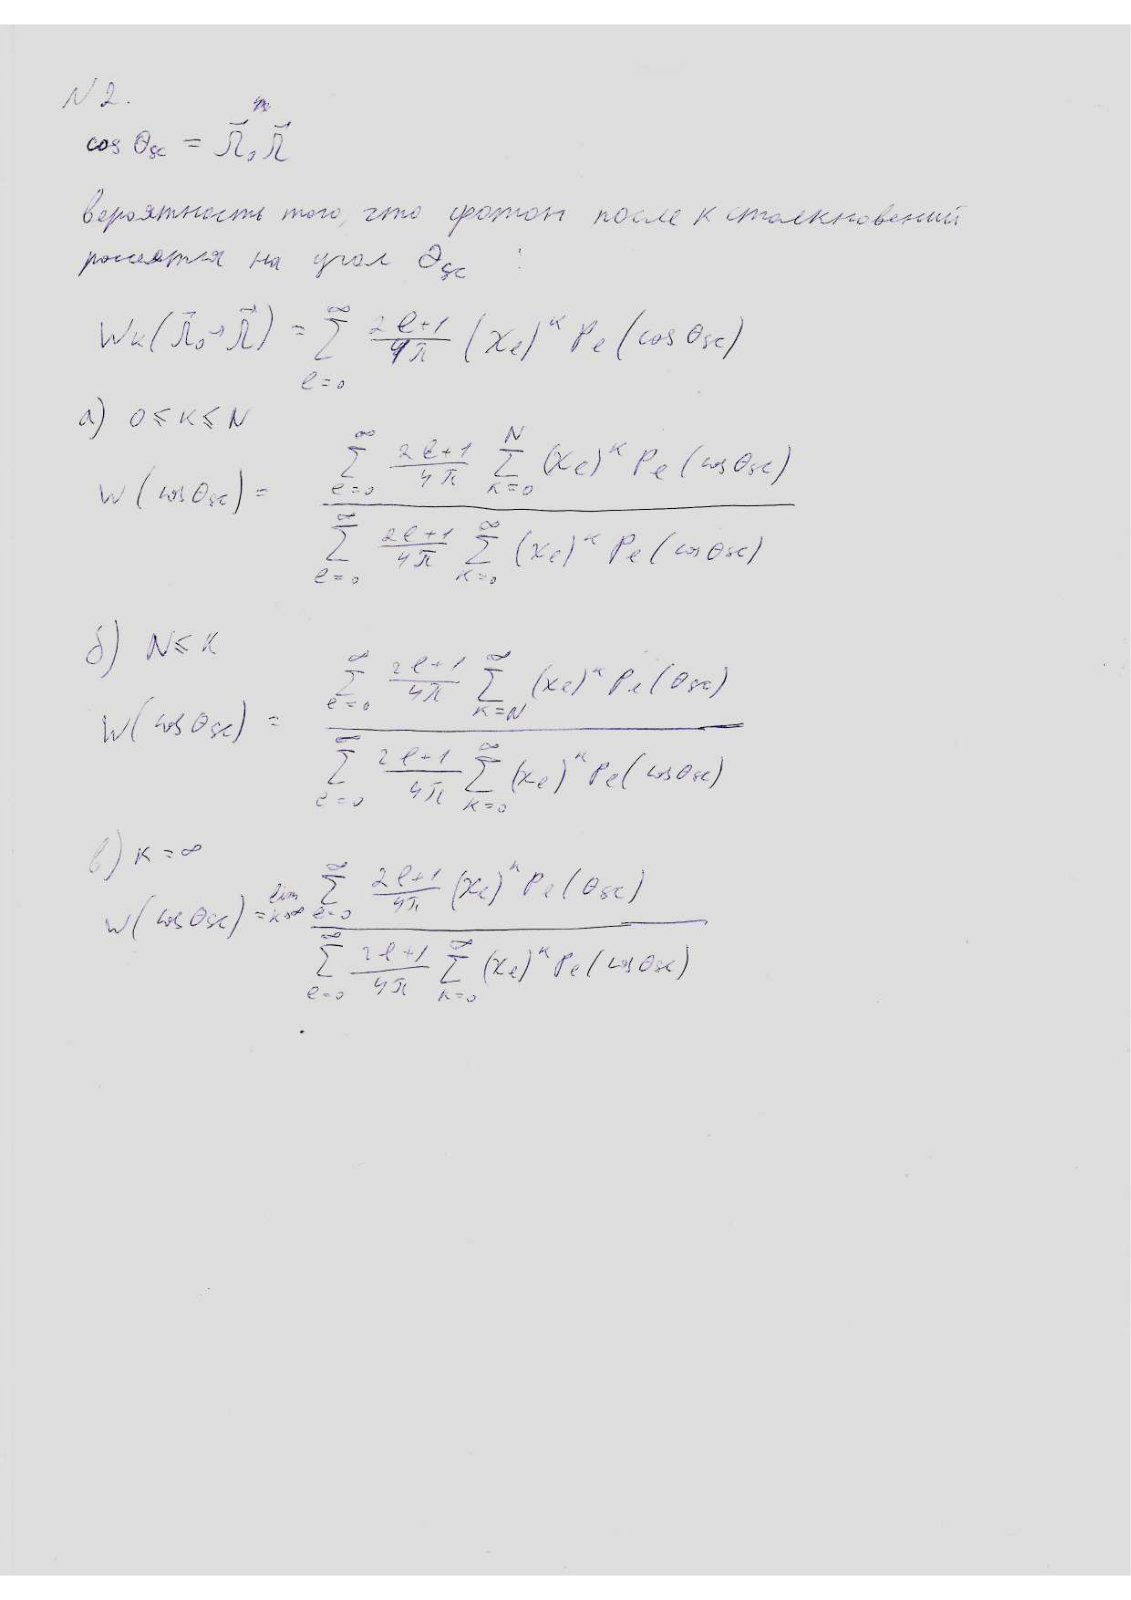 N 2.
cos θsc = Ω⃗₀ Ω⃗
вероятность того, что фотон после к столкновений
рассеятся на угол θsc :
Wк(Ω⃗₀→Ω⃗) = ∞ Σ ℓ=0 (2ℓ+1)/4π (χℓ)^к Pℓ(cosθsc)
а) 0 ≤ к ≤ N
W(cosθsc) = ∞ Σ ℓ=0 (2ℓ+1)/4π N Σ к=0 (χℓ)^к Pℓ(cosθsc)
∞ Σ ℓ=0 (2ℓ+1)/4π ∞ Σ к=0 (χℓ)^к Pℓ(cosθsc)
б) N ≤ к
W(cosθsc) = ∞ Σ ℓ=0 (2ℓ+1)/4π ∞ Σ к=N (χℓ)^к Pℓ(θsc)
∞ Σ ℓ=0 (2ℓ+1)/4π ∞ Σ к=0 (χℓ)^к Pℓ(cosθsc)
в) к = ∞
W(cosθsc) = lim к→∞ ∞ Σ ℓ=0 (2ℓ+1)/4π (χℓ)^к Pℓ(θsc)
∞ Σ ℓ=0 (2ℓ+1)/4π ∞ Σ к=0 (χℓ)^к Pℓ(cosθsc)